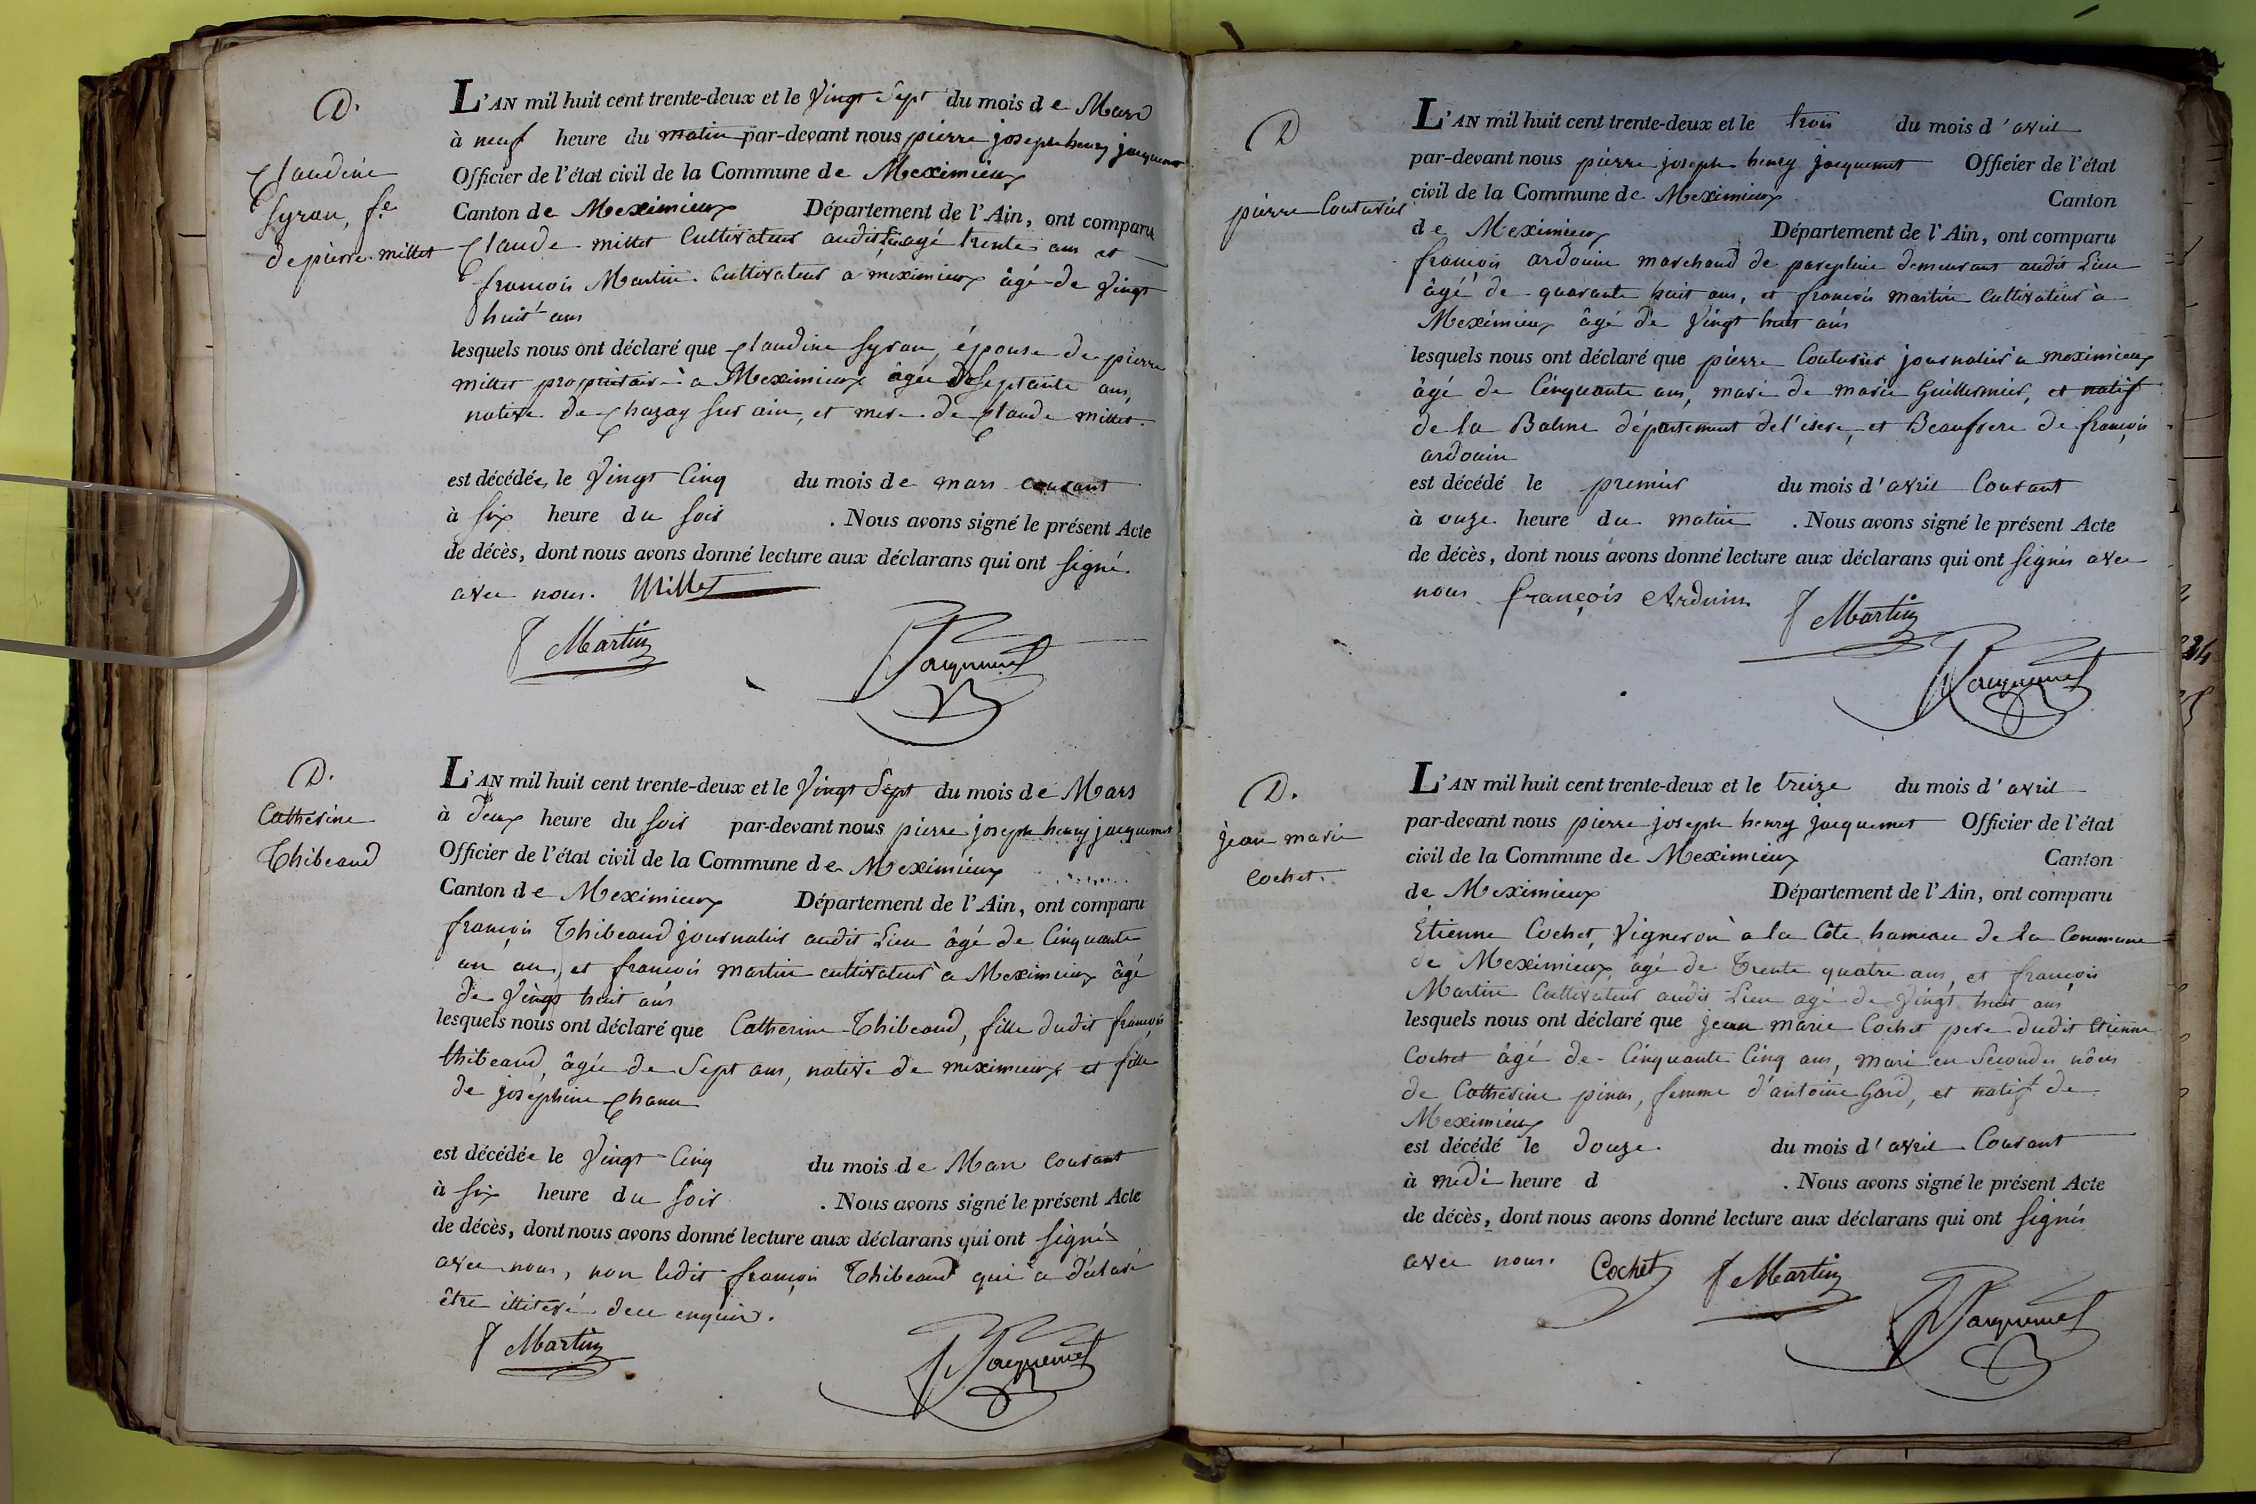 D.
Claudine
Syran, fe
de pierre millet
L'AN mil huit cent trente-deux et le Vingt Sept du mois de Mars
à neuf heure du matin par-devant nous pierre joseph henry jacquemet
Officier de l'état civil de la Commune de Meximieux
Canton de Meximieux Département de l'Ain, ont comparu
Claude millet Cultivateur audit lieu agé trente ans et
françois Martin Cultivateur a meximieux âgé de Vingt
huit ans
lesquels nous ont déclaré que Claudine Syran, épouse de pierre
millet propriétaire à Meximieux âgée de Septante ans,
native de Chazay sur ain, et mere de Claude millet.
est décédée, le Vingt Cinq du mois de mars courant
à six heure du soir . Nous avons signé le présent Acte
de décès, dont nous avons donné lecture aux déclarans qui ont signé
avec nous. Millet
f Martin Jacquemet
D.
Catherine
Thibeaud
L'AN mil huit cent trente-deux et le Vingt Sept du mois de Mars
à deux heure du soir par-devant nous pierre joseph henry jacquemet
Officier de l'état civil de la Commune de Meximieux
Canton de Meximieux Département de l'Ain, ont comparu
françois Thibeaud journalier audit Lieu âgé de Cinquante
un ans, et françois martin cultivateur a Meximieux âgé
de Vingt huit ans
lesquels nous ont déclaré que Catherine Thibeaud, fille dudit françois
thibeaud, âgée de Sept ans, native de meximieux et fille
de joséphine Chanu
est décédée le Vingt Cinq du mois de Mars courant
à six heure du soir . Nous avons signé le présent Acte
de décès, dont nous avons donné lecture aux déclarans qui ont signés
avec nous, non ledit françois Thibeaud qui a déclaré
être illiteré de ce enquis.
f Martin Jacquemet
D
pierre Couturier
L'AN mil huit cent trente-deux et le trois du mois d'avril
par-devant nous pierre joseph henry jacquemet Officier de l'état
civil de la Commune de Meximieux Canton
de Meximieux Département de l'Ain, ont comparu
françois ardouin marchand de parapluie demeurant audit Lieu
âgé de quarante huit ans, et françois martin Cultivateur à
Meximieux âgé de Vingt huit ans
lesquels nous ont déclaré que pierre Couturier journalier a meximieux
âgé de Cinquante ans, mari de marie Guillermier, et natif
de la Balme département de l'isere, et Beaufrere de françois
ardouin
est décédé le premier du mois d'avril Courant
à onze heure du matin . Nous avons signé le présent Acte
de décès, dont nous avons donné lecture aux déclarans qui ont signés avec
nous françois Arduin f Martin
Jacquemet
D.
jean marie
Cochet.
L'AN mil huit cent trente-deux et le treize du mois d'avril
par-devant nous pierre joseph henry jacquemet Officier de l'état
civil de la Commune de Meximieux Canton
de Meximieux Département de l'Ain, ont comparu
Etienne Cochet, Vigneron à la Côte hameau de la Commune
de Meximieux, âgé de Trente quatre ans, et françois
Martin Cultivateur audit Lieu agé de Vingt huit ans
lesquels nous ont déclaré que jean marie Cochet pere dudit Etienne
Cochet âgé de Cinquante Cinq ans, mari en Secondes nôces
de Catherine pinas, femme d'antoine Gard, et natif de
Meximieux
est décédé le douze du mois d'avril Courant
à midi heure d . Nous avons signé le présent Acte
de décès, dont nous avons donné lecture aux déclarans qui ont signés
avec nous. Cochet f Martin
Jacquemet